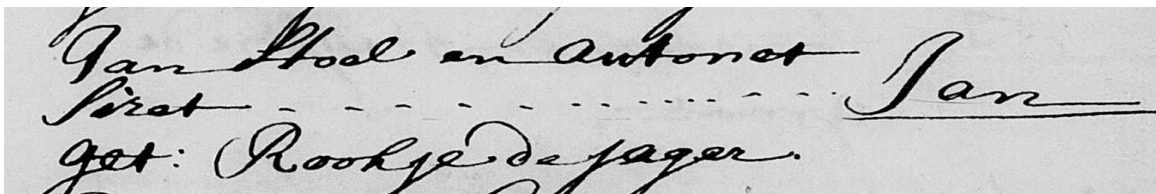 Jan Stoel en Antonet
Siret - - - - - - - - - - - - - Jan
get: Rookje de Jager.